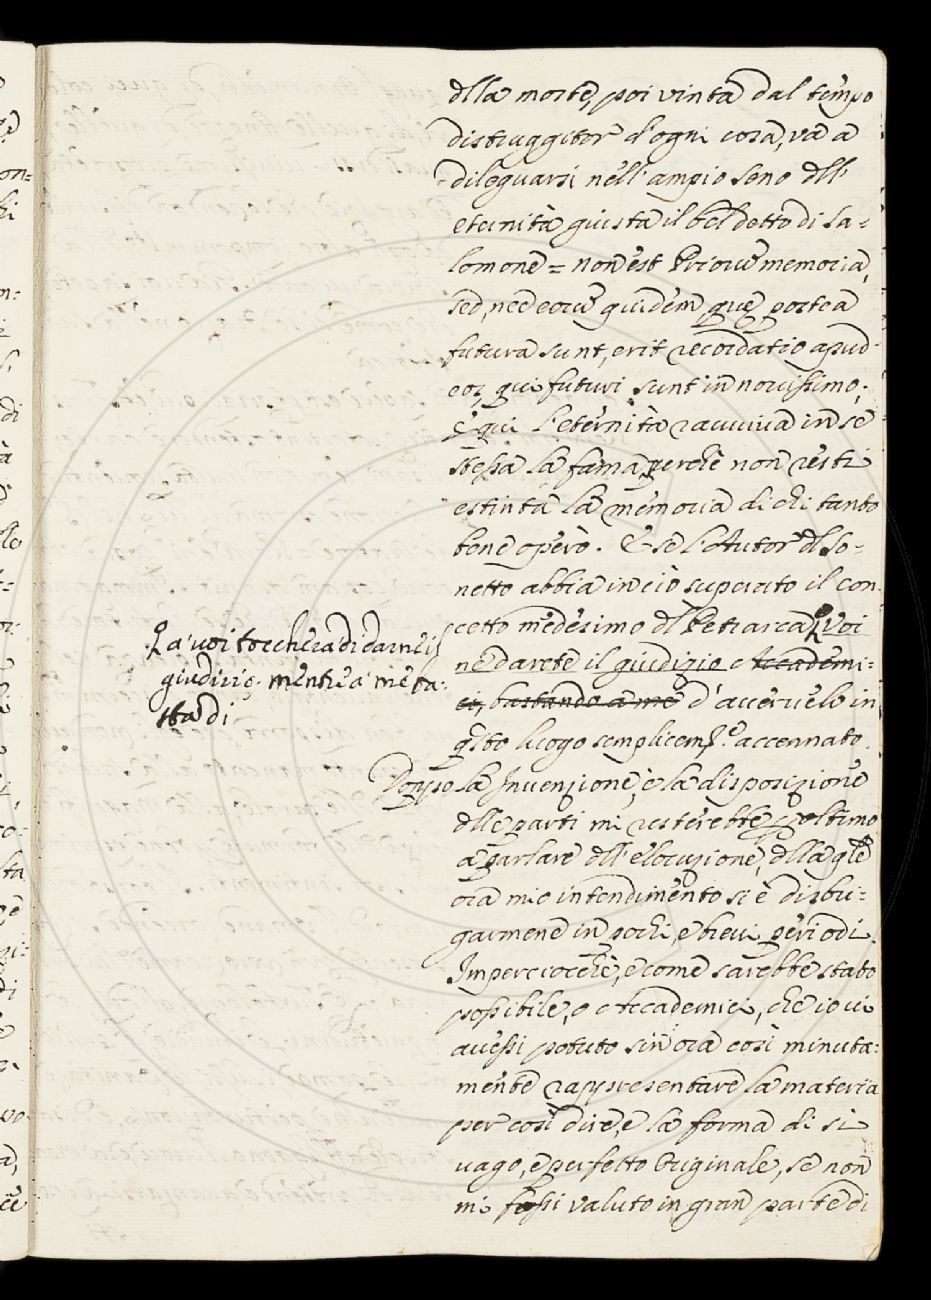 dlla morte, poi vinta dal tempo
distruggitor d'ogni cosa, va a
dileguarsi nell'ampio seno dll'
eternità giusta il bel detto di Sa=
lomone = non est Prioru memoria,
sed, nec eoru quidem, que postea
futura sunt, erit recordatio apud
eos, qui futuri sunt in novissimo;
E qui l'eternità ravviva in se
stessa la fama, perchè non resti
estinta la memoria di chi tanto
bene operò. E se l'Autor dl So=
netto abbia in ciò superato il con
cetto medesimo dl Petrarca, voi
ne darete il giudizio o Accademi=
ci, bastando a me d'avervelo in
qsto luogo semplicemte accennato.
Doppo la Invenzione, e la disposizione
dlle parti mi resterebbe p ultimo
a parlare dll'elocuzione, dlla qle
ora mio intendimento si è disbri=
garmene in pochi, e brevi periodi.
Imperciocchè, e come sarebbe stato
possibile, o Accademici, che io vi
avessi potuto sin ora così minuta=
mente rappresentare la materia
per così dire, e la forma di sì
vago, e perfetto Originale, se non
mi fossi valuto in gran parte di
a voi toccherà di darne il
giudizio. mentre a me ba=
sta di